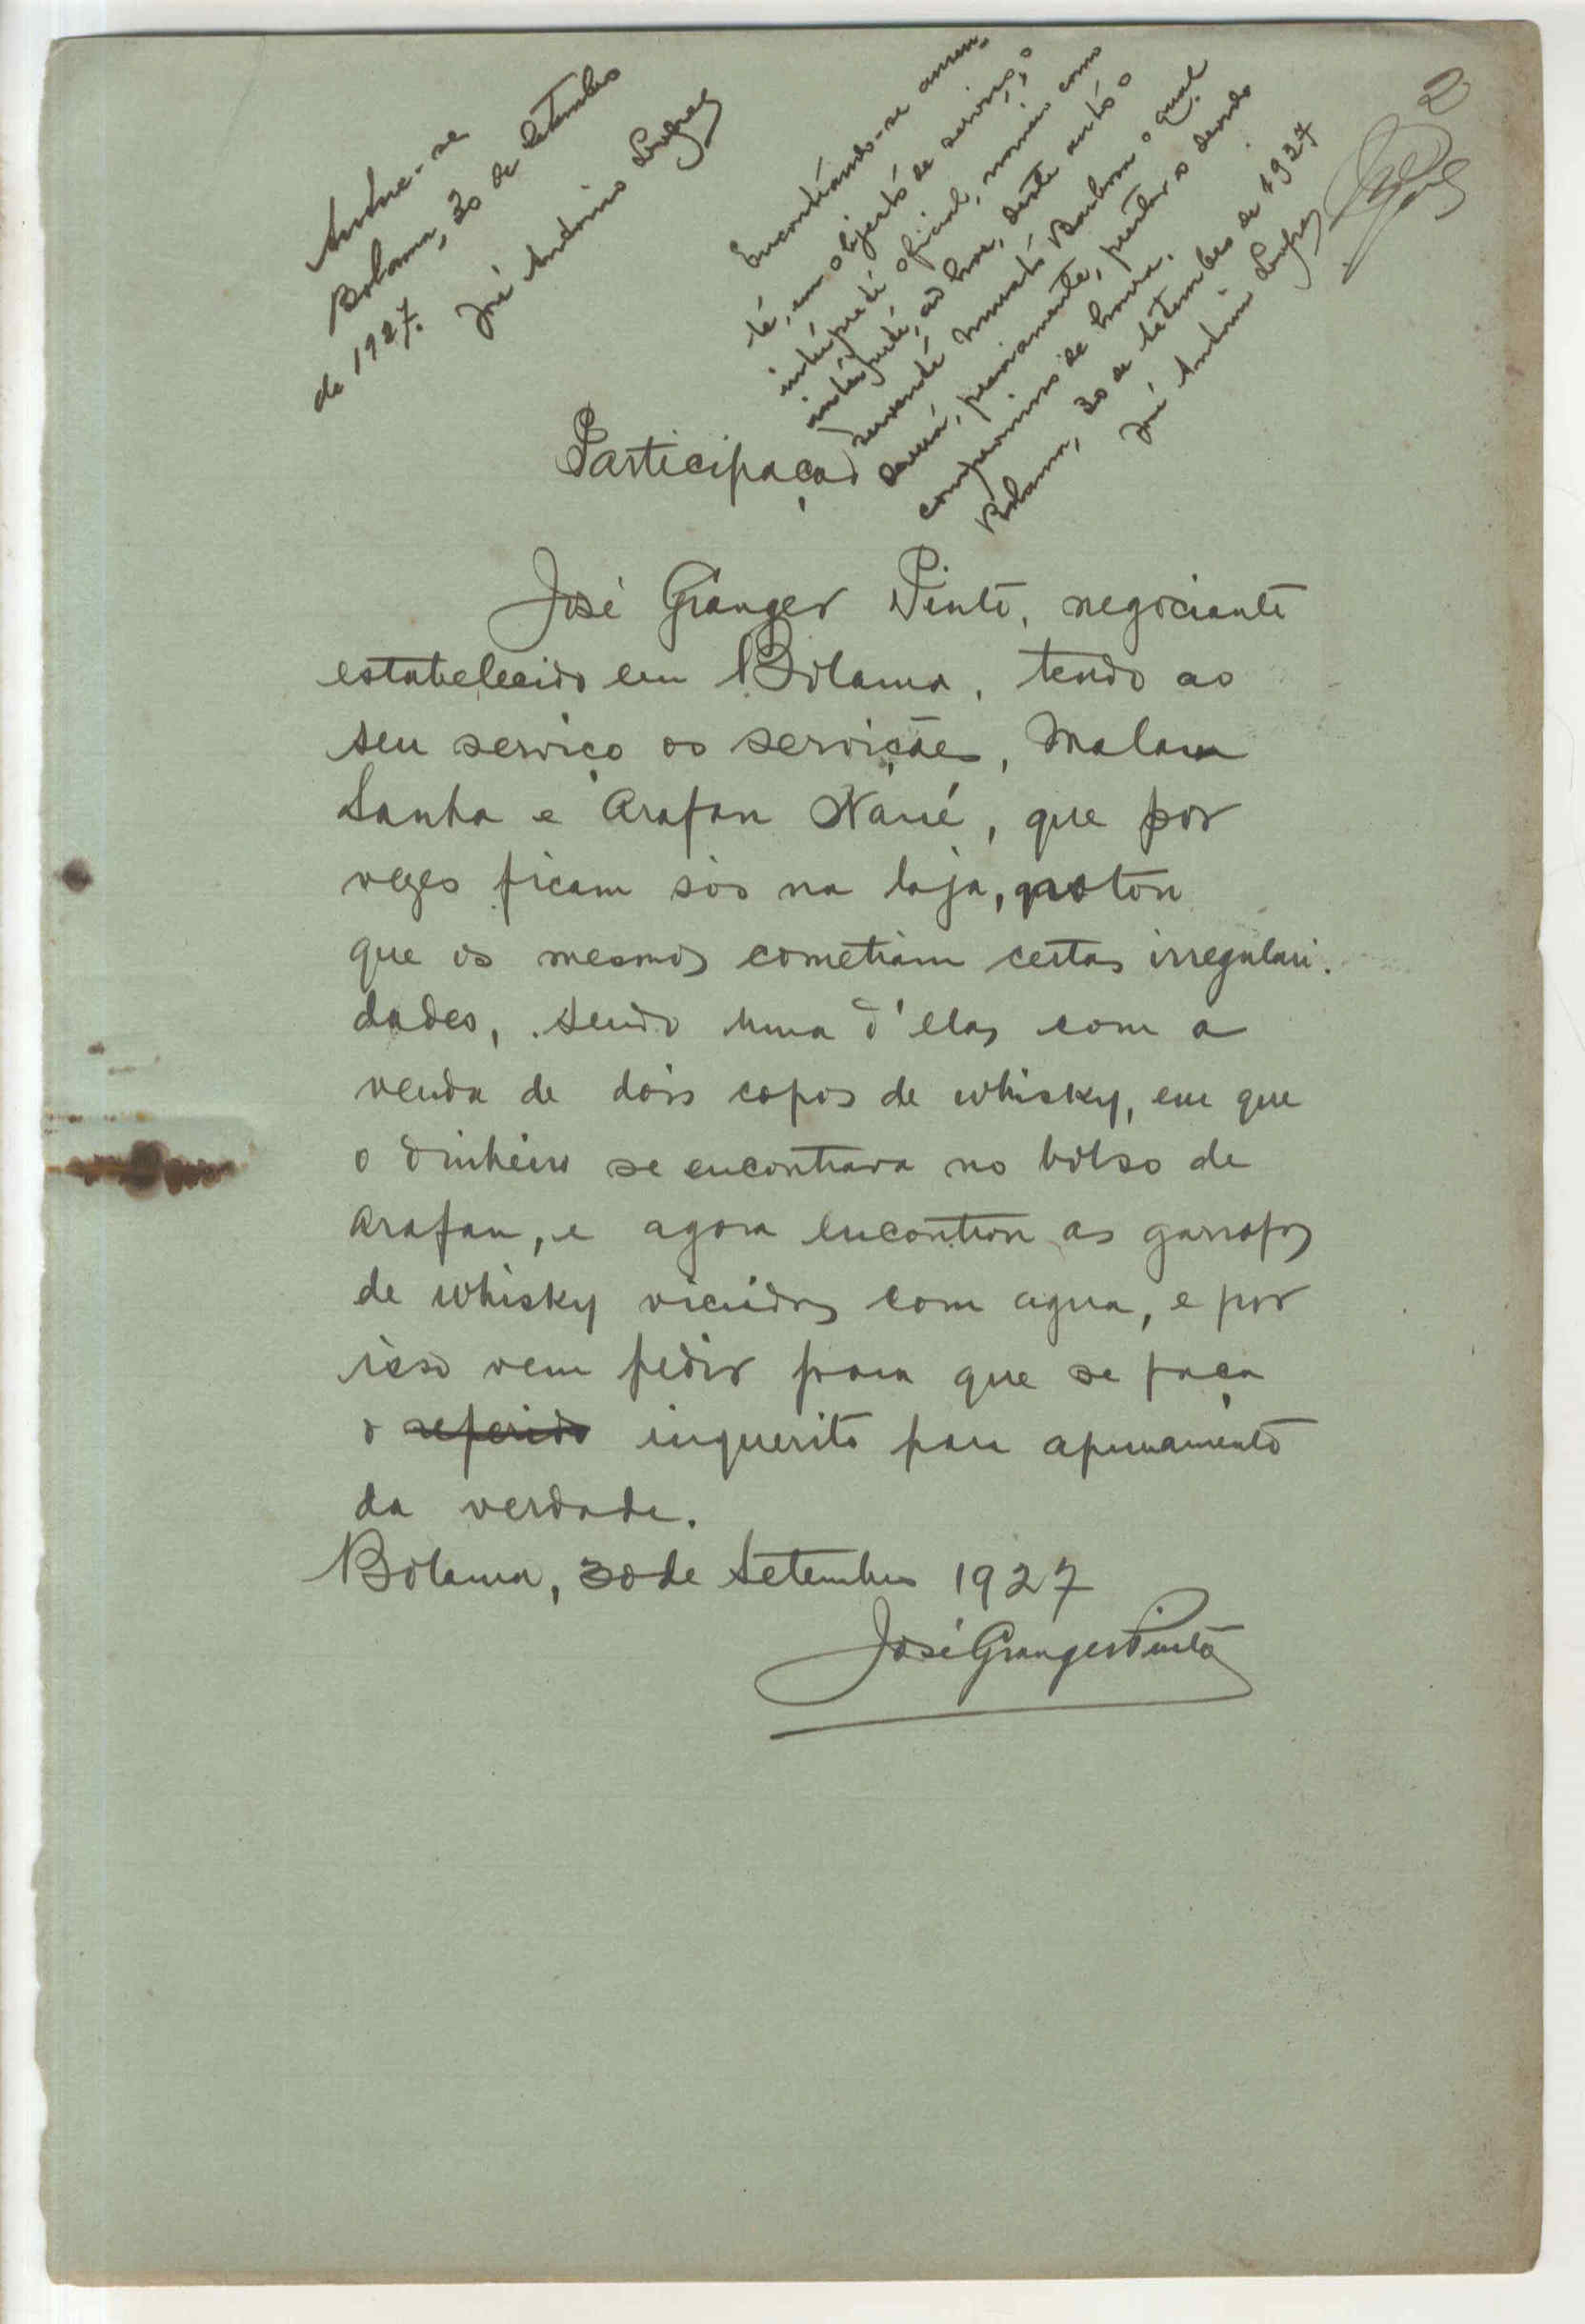 Autue-se
Bolama, 30 de Setembro
de 1927.
José António Lopes
Encontrando-se ausen-
te, em objecto de serviço, o
intérprete oficial, nomeio como
intérprete, ad hoc, deste auto o
servente Barbosa o qual
deverá, previamente, prestar o devido
compromisso de honra.
Bolama, 30 de Setembro de 1927
José António Lopes
2
Participação
José Granger Pinto, negociante
estabelecido em Bolama, tendo ao
seu serviço os serviçães, Malam
Sanha e Arafan Nané, que por
vezes ficam sós na loja, notou
que os mesmos cometiam certas irregulari-
dades, sendo uma d'elas com a
venda de dois copos de whisky, em que
o dinheiro se encontrava no bolso de
Arafan, e agora encontrou as garrafas
de whisky viciadas com agua, e por
isso vem pedir para que se faça
o referido inquerito para apuramento
da verdade.
Bolama, 30 de Setembro 1927
José Granger Pinto